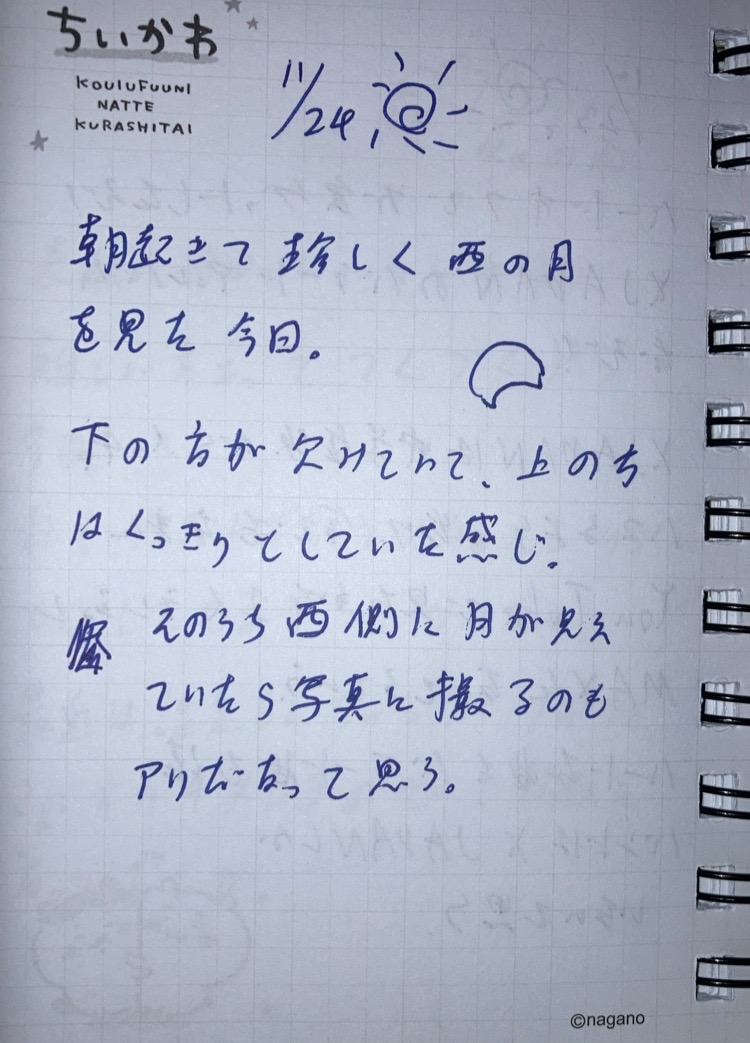 ちいかわ
KOUIUFUUNI
NATTE
KURASHITAI
11/24
朝起きて 珍しく 西の月
を見た 今日。
下の方が欠けていて、上のち
はくっきりとしていた感じ。
そのうち西側に月が見え
ていたら写真に撮るのも
アリだなって思う。
©nagano